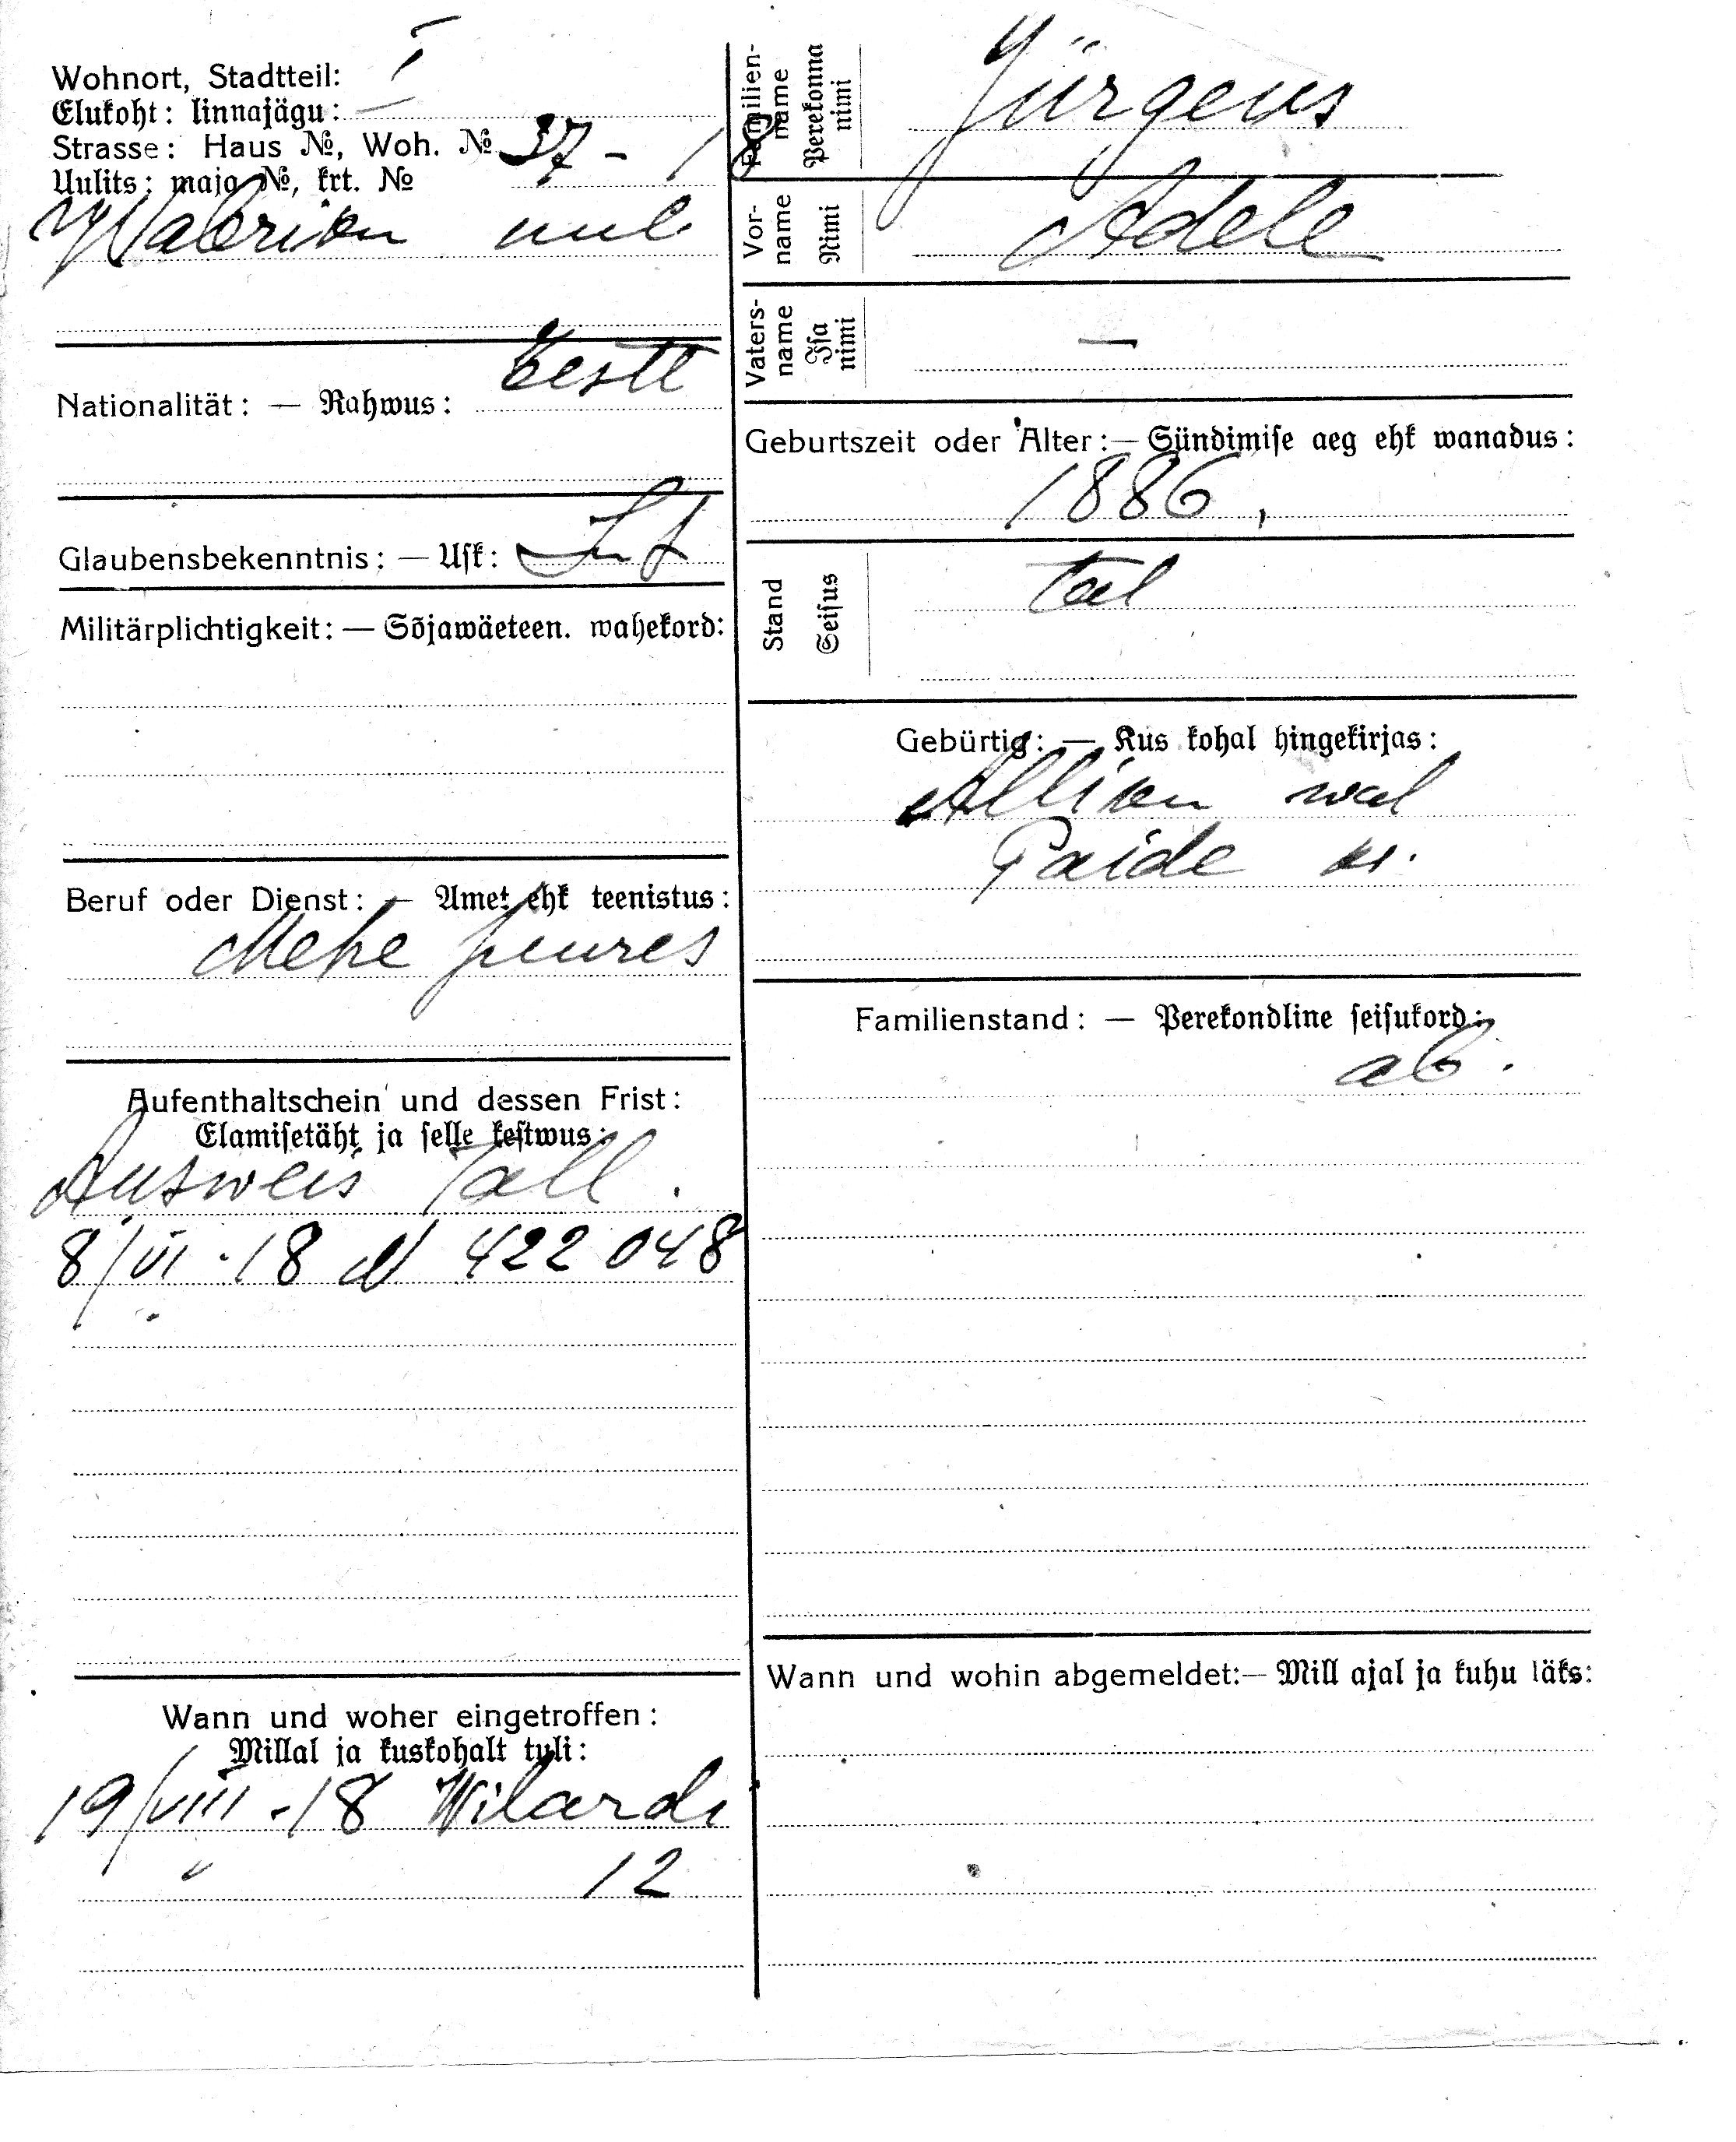 Wohnort, Stadtteil: I
Elukoht: linnajägu:
Strasse: Haus №, Woh. № 37 - 18
Uulits: maja №, krt. №
Wabriku uul
Nationalität: — Rahwus: Eestl
Glaubensbekenntnis: — Usk:
Militärplichtigkeit: — Sõjawäeteen. wahekord:
Beruf oder Dienst: — Amet ehk teenistus:
Mehe juures
Aufenthaltschein und dessen Frist:
Elamisetäht ja selle kestwus:
Ausweis Tall.
8/VI -18 N 422 048
Wann und woher eingetroffen:
Millal ja kuskohalt tuli:
19/VIII -18 Wilardi
12
Familien-name Perekonna nimi Jürgens
Vor-name Nimi Adele
Vaters-name Isa nimi —
Geburtszeit oder Alter: — Sündimise aeg ehk wanadus:
1886,
Stand Seisus tal
Gebürtig: — Kus kohal hingekirjas:
Alliku wal
Paide kr.
Familienstand: — Perekondline seisukord:
ab.
Wann und wohin abgemeldet: — Mill ajal ja kuhu läks: